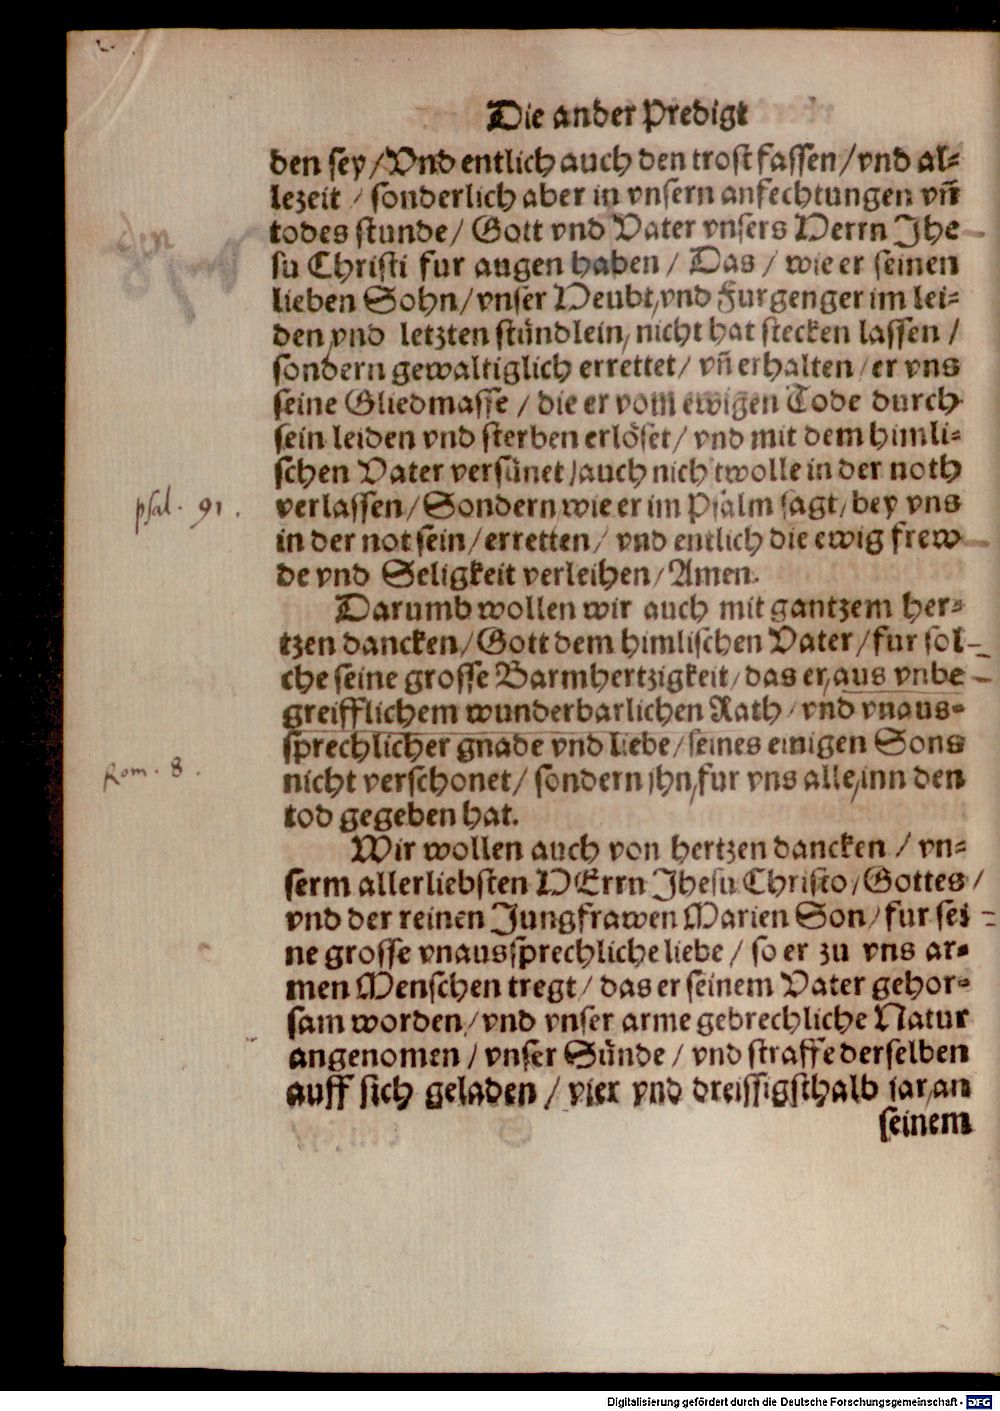 Die ander Predigt
den sey / Vnd entlich auch den trost fassen / vnd al⸗
lezeit / sonderlich aber in vnsern anfechtungen vñ
todes stunde / Gott vnd Vater vnsers Herrn Jhe
su Christi fur augen haben / Das / wie er seinen
lieben Sohn / vnser Heubt, vnd Furgenger im lei⸗
den, vnd letzten stündlein, nicht hat stecken lassen /
sondern gewaltiglich errettet / vñ erhalten / er vns
seine Gliedmasse / die er vom ewigen Tode durch
sein leiden vnd sterben erlöset / vnd mit dem himli⸗
schen Vater versünet / auch nich twolle in der noth
psal. 91. verlassen / Sondern wie er im Psalm sagt / bey vns
in der not sein / erretten / vnd entlich die ewig frew
de vnd Seligkeit verleihen / Amen.
Darumb wollen wir auch mit gantzem her⸗
tzen dancken / Gott dem himlischen Vater / fur sol⸗
che seine grosse Barmhertzigkeit / das er, aus vnbe
greifflichem wunderbarlichen Rath / vnd vnaus⸗
sprechlicher gnade vnd liebe / seines einigen Sons
Rom. 8. nicht verschonet / sondern jhn, fur vns alle, inn den
tod gegeben hat.
Wir wollen auch von hertzen dancken / vn⸗
serm allerliebsten HErrn Jhesu Christo / Gottes /
vnd der reinen Jungfrawen Marien Son / fur sei⸗
ne grosse vnaussprechliche liebe / so er zu vns ar⸗
men Menschen tregt / das er seinem Vater gehor⸗
sam worden / vnd vnser arme gebrechliche Natur
angenomen / vnser Sünde / vnd straffe derselben
auff sich geladen / vier vnd dreissigsthalb jar, an
seinem
Digitalisierung gefördert durch die Deutsche Forschungsgemeinschaft - DFG